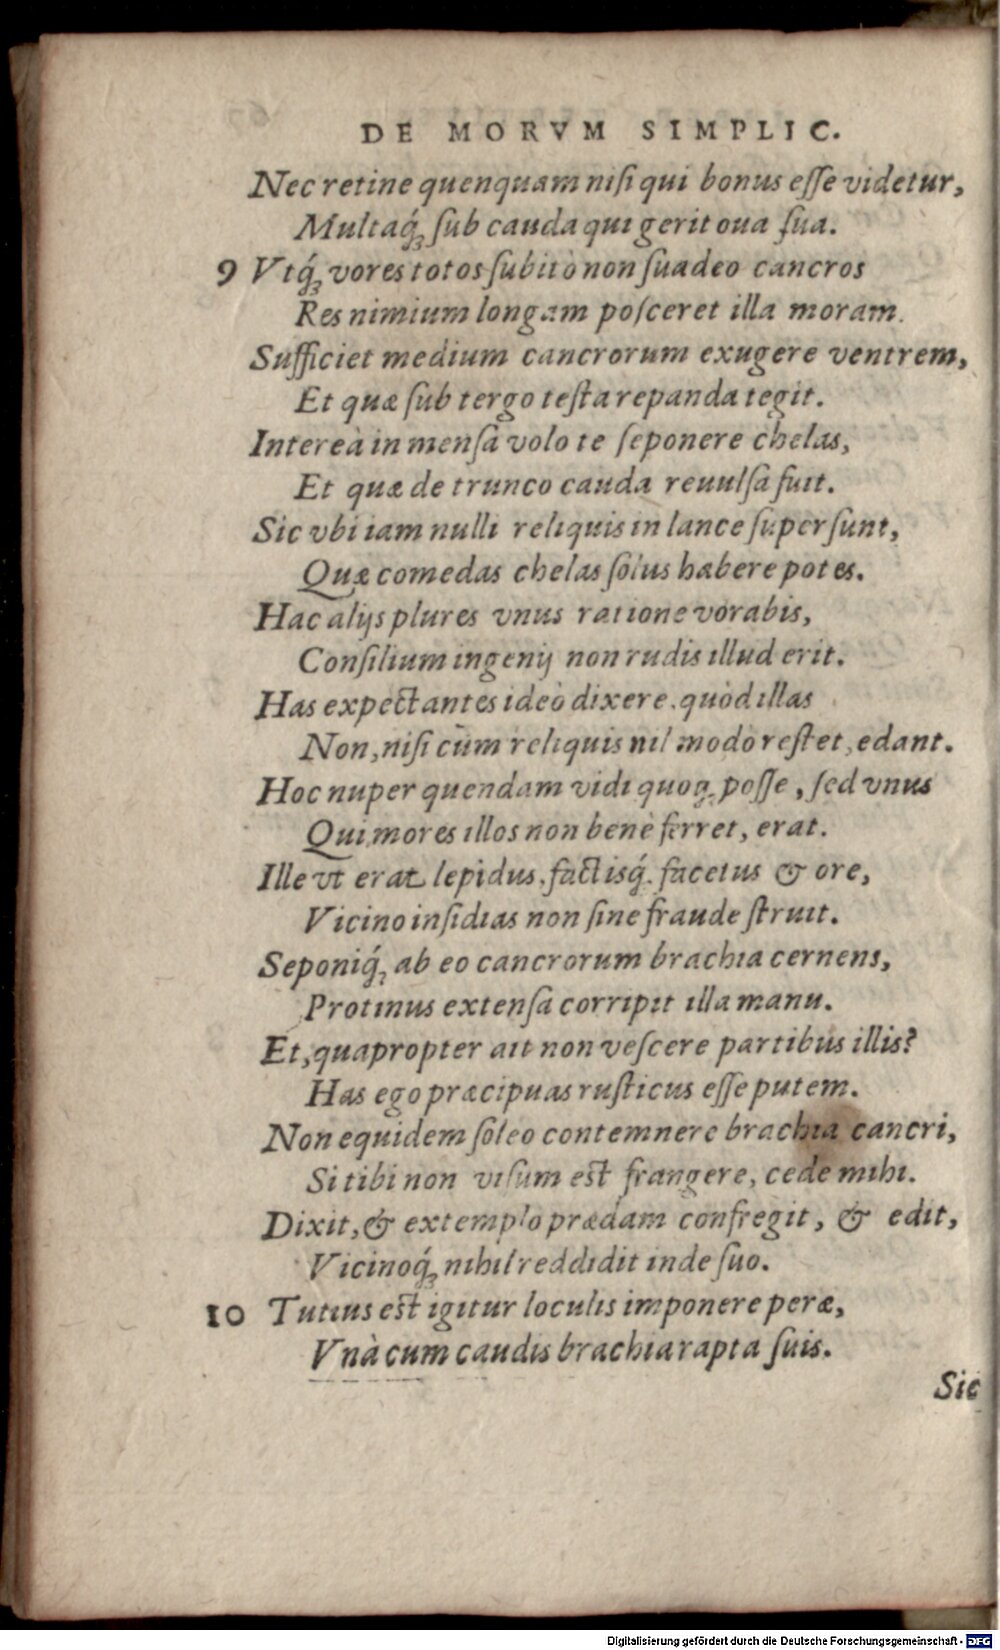 DE MORVM SIMPLIC.
Nec retine quenquam nisi qui bonus esse videtur,
Multaq́ꝫ sub cauda qui gerit oua sua.
9 Vtq́ꝫ vores totos subitò non suadeo cancros
Res nimium longam posceret illa moram.
Sufficiet medium cancrorum exugere ventrem,
Et quæ sub tergo testa repanda tegit.
Intereà in mensâ volo te seponere chelas,
Et quæ de trunco cauda reuulsa fuit.
Sic vbi iam nulli reliquis in lance supersunt,
Quæ comedas chelas solus habere potes.
Hac alijs plures vnus ratione vorabis,
Consilium ingenij non rudis illud erit.
Has expectantes ideò dixere, quòd illas
Non, nisi cùm reliquis nil modo restet, edant.
Hoc nuper quendam vidi quoq; posse, sed vnus
Qui mores illos non benè ferret, erat.
Ille vt erat lepidus, factisq́; facetus & ore,
Vicino insidias non sine fraude struit.
Seponiq́ꝫ ab eo cancrorum brachia cernens,
Protinus extensa corripit illa manu.
Et, quapropter ait non vescere partibus illis?
Has ego præcipuas rusticus esse putem.
Non equidem soleo contemnere brachia cancri,
Si tibi non visum est frangere, cede mihi.
Dixit, & extemplo prædam confregit, & edit,
Vicinoq́ꝫ nihil reddidit inde suo.
10 Tutius est igitur loculis imponere peræ,
Vnà cum caudis brachia rapta suis.
Sic
Digitalisierung gefördert durch die Deutsche Forschungsgemeinschaft - DFG